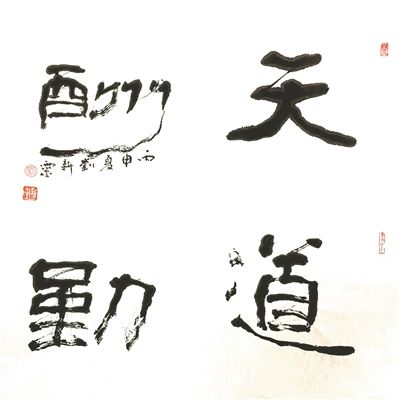 天道
酬勤
丙申夏劉